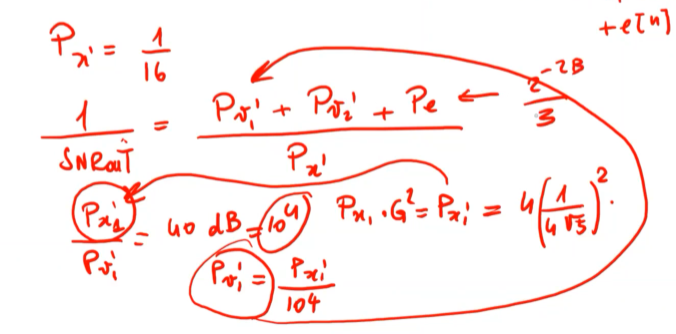 +e[n]
P_x' = 1/16
1/SNRout = (P_v₁' + P_v₂' + Pe)/P_x' ← 2^-2B/3
P_x₁'/P_v₁' = 40 dB = 10⁴ P_x₁ · G² = P_x₁' = 4(1/(4√5))² ·
P_v₁' = P_x₁'/10⁴